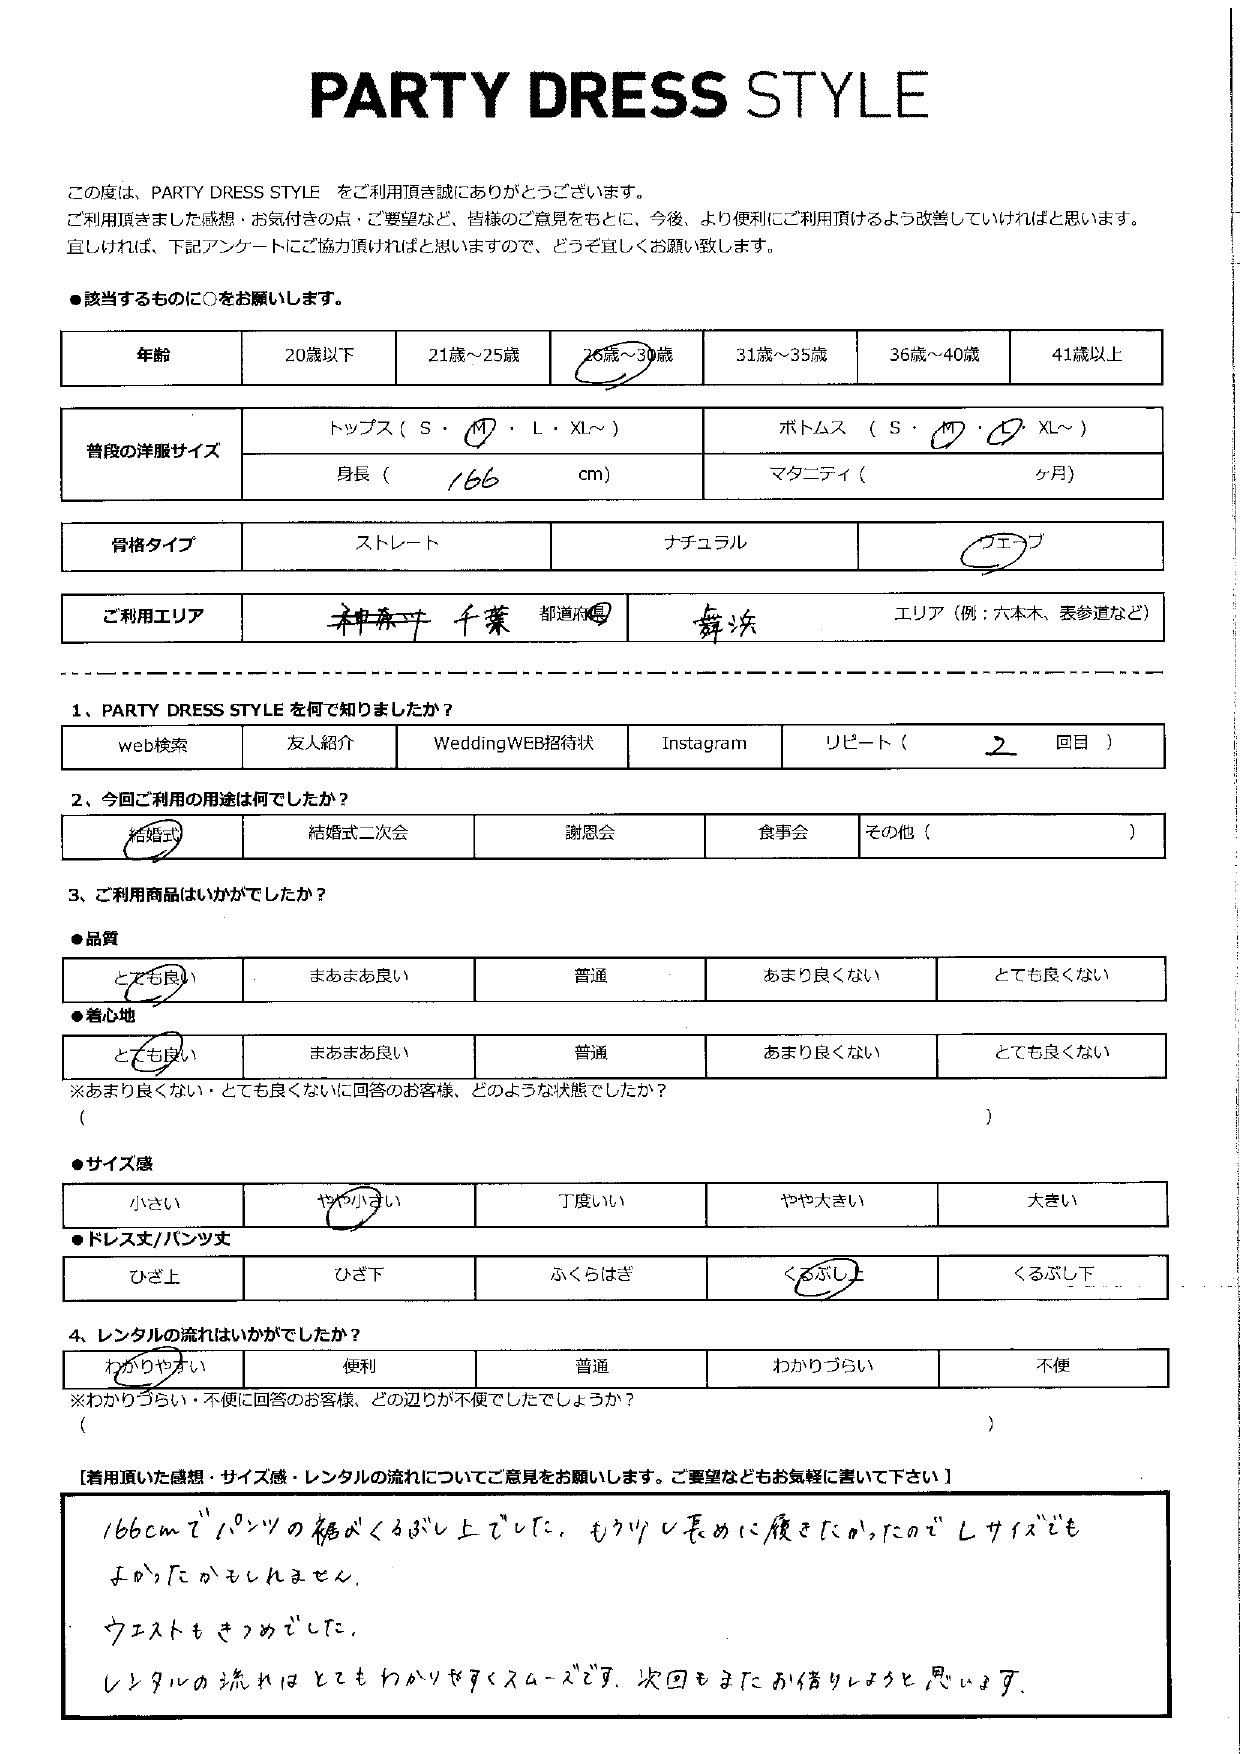 PARTY DRESS STYLE
この度は、PARTY DRESS STYLE をご利用頂き誠にありがとうございます。
ご利用頂きました感想・お気付きの点・ご要望など、皆様のご意見をもとに、今後、より便利にご利用頂けるよう改善していければと思います。
宜しければ、下記アンケートにご協力頂ければと思いますので、どうぞ宜しくお願い致します。
●該当するものに○をお願いします。
年齢 20歳以下 21歳～25歳 26歳～30歳 31歳～35歳 36歳～40歳 41歳以上
普段の洋服サイズ トップス ( S ・ M ・ L ・ XL～ ) ボトムス ( S ・ M ・ L ・ XL～ )
身長 ( 166 cm) マタニティ ( ヶ月)
骨格タイプ ストレート ナチュラル ウエーブ
ご利用エリア 神奈川 千葉 都道府県 舞浜 エリア（例；六本木、表参道など）
1、PARTY DRESS STYLE を何で知りましたか？
web検索 友人紹介 WeddingWEB招待状 Instagram リピート ( 2 回目 )
2、今回ご利用の用途は何でしたか？
結婚式 結婚式二次会 謝恩会 食事会 その他 ( )
3、ご利用商品はいかがでしたか？
●品質
とても良い まあまあ良い 普通 あまり良くない とても良くない
●着心地
とても良い まあまあ良い 普通 あまり良くない とても良くない
※あまり良くない・とても良くないに回答のお客様、どのような状態でしたか？
( )
●サイズ感
小さい やや小さい 丁度いい やや大きい 大きい
●ドレス丈/パンツ丈
ひざ上 ひざ下 ふくらはぎ くるぶし上 くるぶし下
4、レンタルの流れはいかがでしたか？
わかりやすい 便利 普通 わかりづらい 不便
※わかりづらい・不便に回答のお客様、どの辺りが不便でしたでしょうか？
( )
［着用頂いた感想・サイズ感・レンタルの流れについてご意見をお願いします。ご要望などもお気軽に書いて下さい］
166cmでパンツの裾がくるぶし上でした。もう少し長めに履きたかったのでLサイズでも
よかったかもしれません。
ウエストもきつめでした。
レンタルの流れはとてもわかりやすくスムーズです。次回もまたお借りしようと思います。